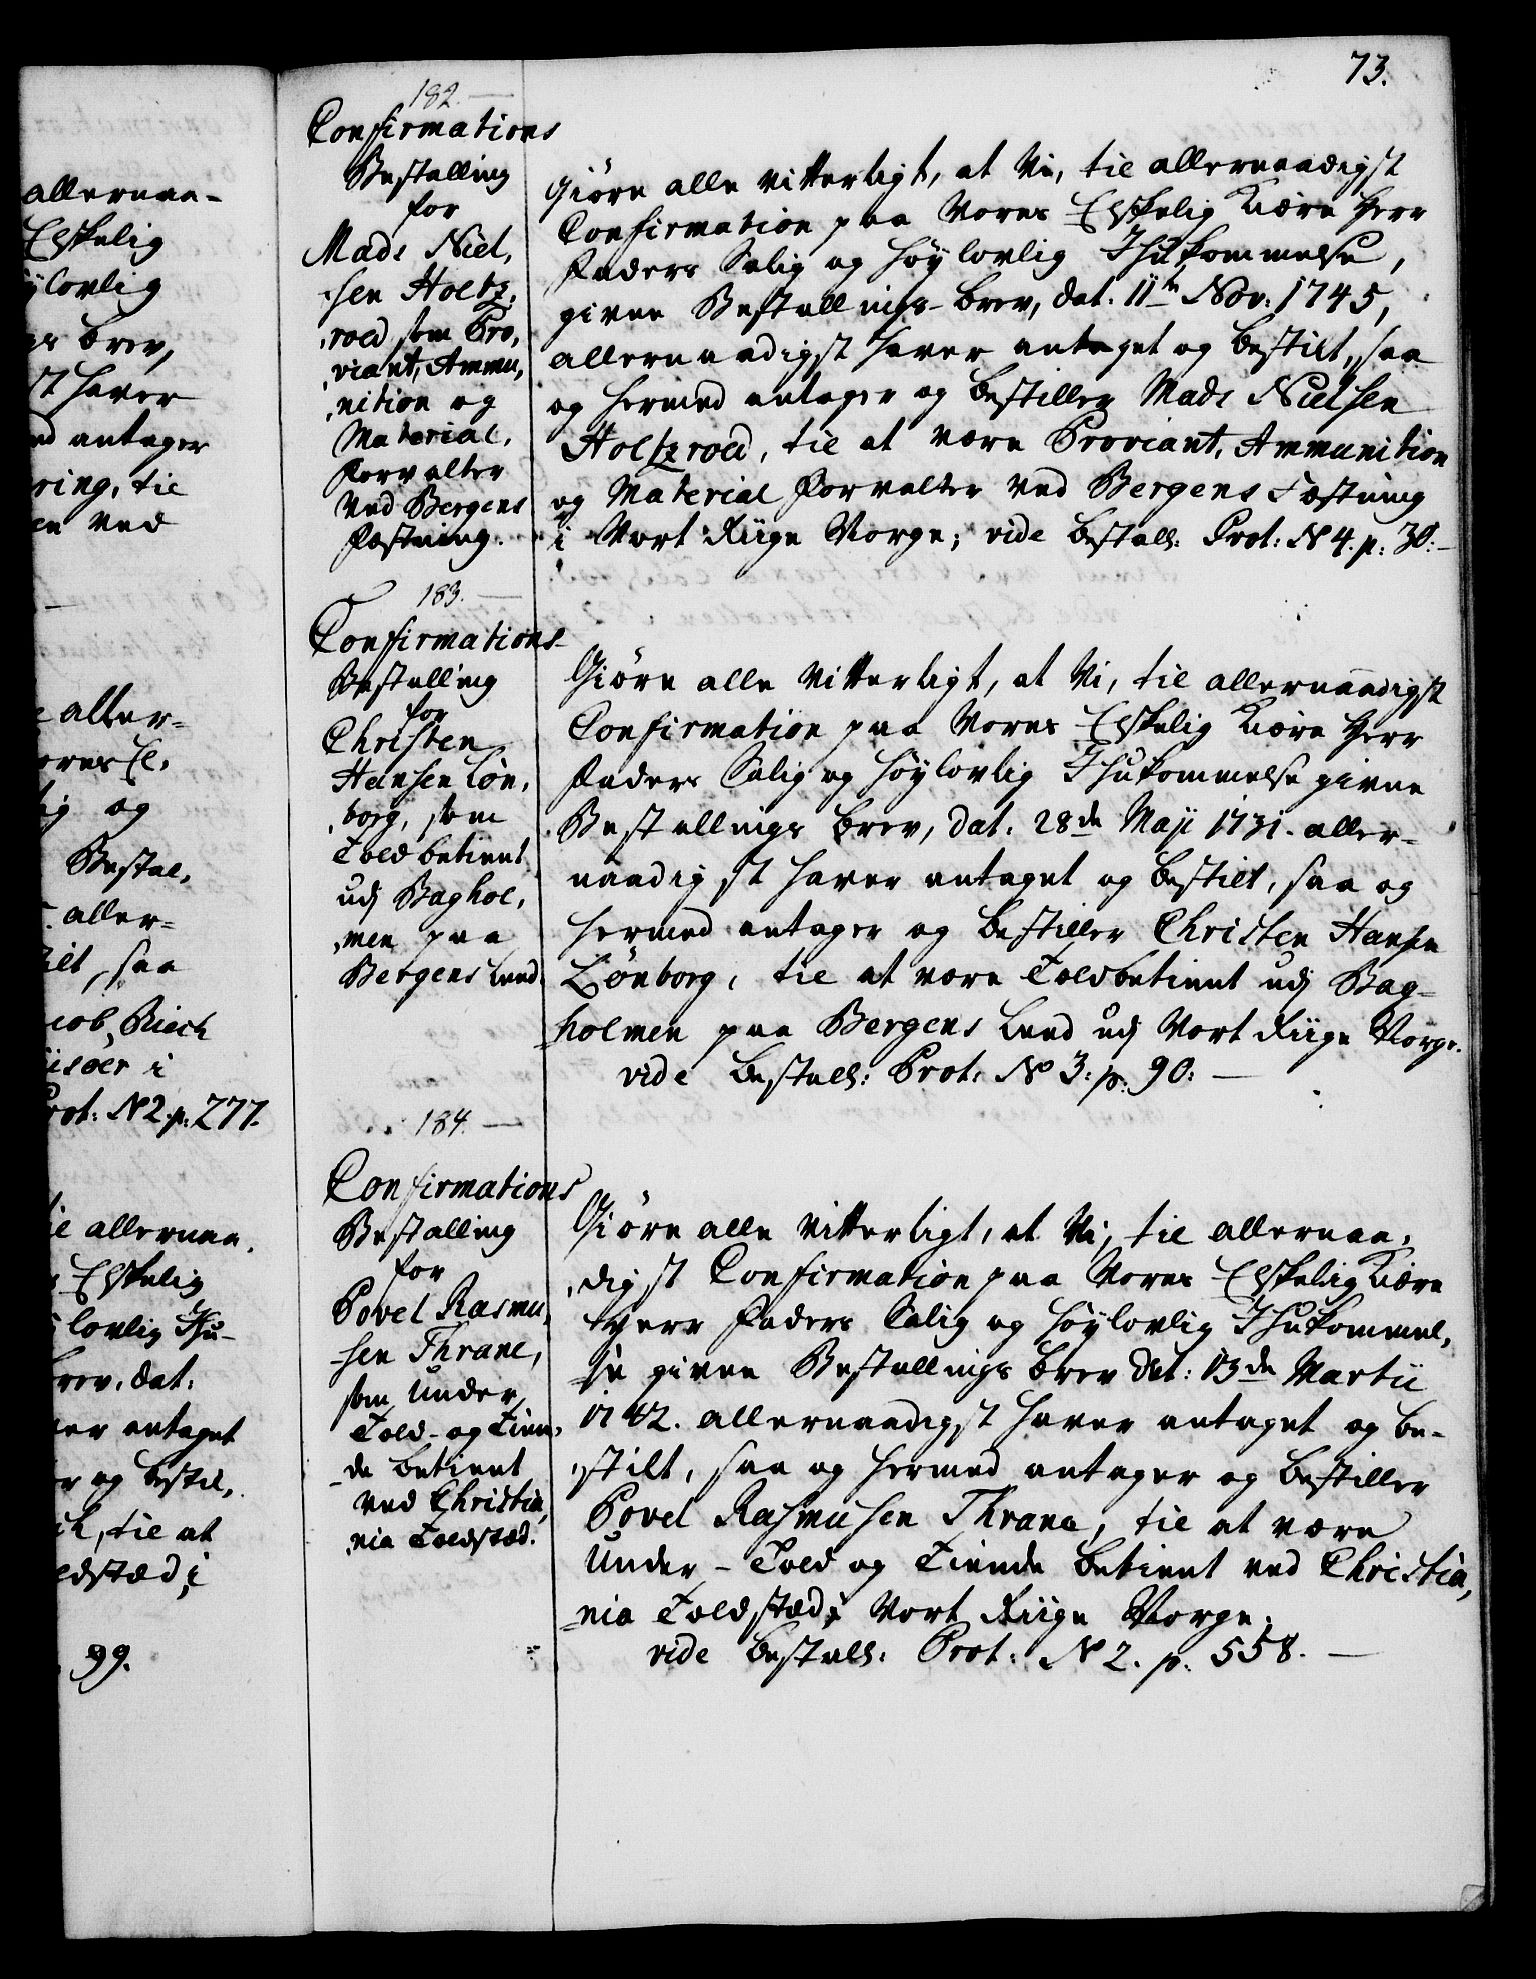 73.
182.
Confirmations
Bestalling
for
Mads Niel,
,sen Holtz,
,roed som Pro,
,viant, Ammu,
,nition og
Material,
Forvalter
ved Bergens
Fæstning.
Giøre alle vitterligt, at Vi, til allernaadigst
Confirmation paa Vores Elskelig Kiære Herr
Faders Salig og Høylovlig Ihukommelse,
givne Bestallings-brev, dat. 11te Nov: 1745,
allernaadigst haver antaget og bestilt, saa
og hermed antager og bestiller Mads Nielsen
Holtzroed, til at være Proviant, Ammunition
og Material Forvalter ved Bergens Fæstning
i Vort Riige Norge; vide bestall: Prot: N 4. p: 30.-
183.
Confirmations-
Bestalling
for
Christen
Hansen Lön,
,borg, som
Told betient
udj Baghol,
,men paa
Bergens Land.
Giøre alle vitterligt, at Vi, til allernaadigst
Confirmation paa Vores Elskelig Kiære Herr
Faders Salig og Høylovlig Ihukommelse givne
Bestallings brev, dat. 28de Maji 1731. aller-
naadigst haver antaget og bestilt, saa og
hermed antager og bestiller Christen Hansen
Lönborg, til at være Toldbetient udj Bag-
holmen paa Bergens Land udj Vort Riige Norge.
vide bestall: Prot: N 3: p: 90: —
184.
Confirmations
Bestalling
for
Povel Rasmu,
-sen Thrane,
som Under
Told- og Tien,
-de betient
ved Christia,
,nia Toldstæd.
Giøre alle vitterligt, at Vi, til allernaa,
,digst Confirmation paa Vores Elskelig Kiære
Herr Faders Salig og Høylovlig Ihukommel,
,se givne Bestallings brev dat: 13de Martii
1742. allernaadigst haver antaget og be-
,stilt, saa og hermed antager og bestiller
Povel Rasmusen Thrane, til at være
Under-Told og Tiende betient ved Christia,
-nia Toldstæd i Vort Riige Norge.
vide bestall: Prot: N 2. p: 558. —
allernaa-
Elskelig
lovlig
brev,
st haver
antager
ring, til
ved
aller-
ores El,
og
Bestal,
aller-
saa
Riech
i
Prot: N 2. p: 277.
allernaa,
Elskelig
lovlig Ihu-
brev, dat:
antaget
og bestil,
til at
99.